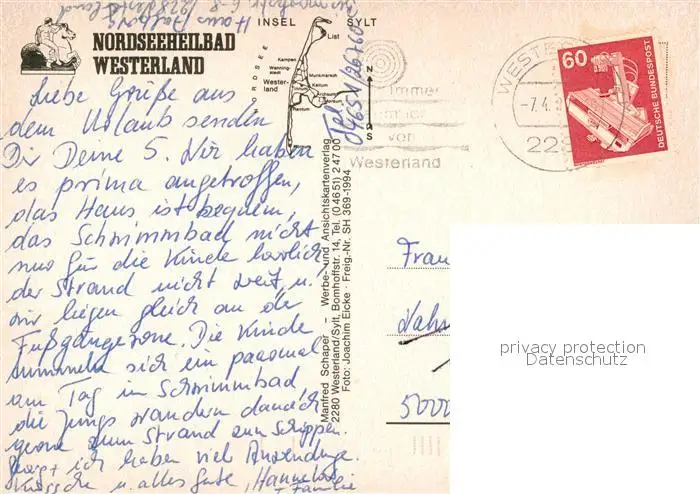 NORDSEEHEILBAD
WESTERLAND
INSEL SYLT
NORDSEE
List
Kampen
Wenningstedt
Westerland
Munkmarsch
Keitum
Rantum
N
S
Tel
04651/26760
Immer
von
Westerland
WESTE
-7.4.
228
60
DEUTSCHE BUNDESPOST
Liebe Grüße aus
dem Urlaub senden
Dir Deine 5. Wir haben
es prima angetroffen,
das Haus ist bequem,
das Schwimmbad nicht
nur für die Kinder herrlich,
der Strand nicht weit, u.
wir liegen gleich an der
Fußgängerzone. Die Kinder
tummeln sich ein paarmal
am Tag im Schwimmbad,
die Jungs wandern danach
gerne zum Strand zum Schippen.
+ ich haben viel Anwendungen.
u. alles Gute, Hannelore
+ Familie
Manfred Schaper – Werbe- und Ansichtskartenverlag
2280 Westerland/Sylt, Bomhoffstr. 14, Tel. (0 46 51) 2 47 00
Foto: Joachim Eicke · Freig.-Nr. SH 369-1994
Frau
5000
privacy protection
Datenschutz